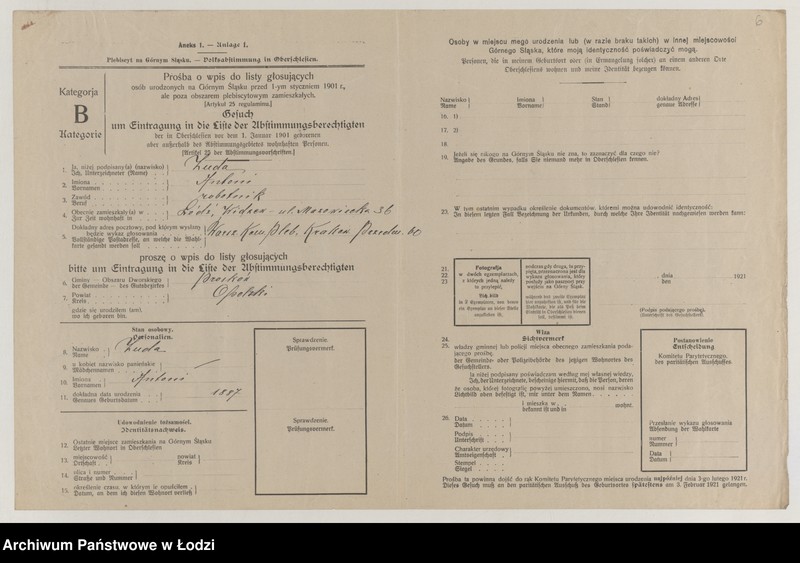 Aneks 1. — Anlage 1.
Plebiscyt na Górnym Śląsku. — Volksabstimmung in Oberschlesien.
Kategorja
B
Kategorie
Prośba o wpis do listy głosujących
osób urodzonych na Górnym Śląsku przed 1-ym styczniem 1901 r.,
ale poza obszarem plebiscytowym zamieszkałych.
[Artykuł 25 regulaminu.]
Gesuch
um Eintragung in die Liste der Abstimmungsberechtigten
der in Oberschlesien vor dem 1. Januar 1901 geborenen
aber außerhalb des Abstimmungsgebietes wohnhaften Personen.
[Artikel 25 der Abstimmungsvorschriften.]
1. Ja, niżej podpisany(a) (nazwisko)
Ich, Unterzeichneter (Name)
Zuda
2. Imiona
Vornamen
Antoni
3. Zawód
Beruf
robotnik
4. Obecnie zamieszkały(a) w
Zur Zeit wohnhaft in
Łódź, Widzew - ul. 36
5. Dokładny adres pocztowy, pod którym wysłany
będzie wykaz głosowania
Vollständige Postadresse, an welche die Wahl-
karte gesandt werden soll
proszę o wpis do listy głosujących
bitte um Eintragung in die Liste der Abstimmungsberechtigten
6. Gminy — Obszaru Dworskiego
der Gemeinde — des Gutsbezirkes
7. Powiat
Kreis
Opolski
gdzie urodziłem (am),
wo ich geboren bin.
Stan osobowy.
Personalien.
8. Nazwisko
Name
Zuda
9. u kobiet nazwisko panieńskie
Mädchennamen
—
10. Imiona
Vornamen
Antoni
11. dokładna data urodzenia
Genaues Geburtsdatum
1887
Udowodnienie tożsamości.
Identitätsnachweis.
12. Ostatnie miejsce zamieszkania na Górnym Śląsku
Letzter Wohnort in Oberschlesien
13. miejscowość
Ortschaft
powiat
Kreis
14. ulica i numer
Straße und Nummer
15. określenie czasu, w którym je opuściłem
Datum, an dem ich diesen Wohnort verließ
Sprawdzenie.
Prüfungsvermerk.
Sprawdzenie.
Prüfungsvermerk.
6
Osoby w miejscu mego urodzenia lub (w razie braku takich) w innej miejscowości
Górnego Śląska, które moją identyczność poświadczyć mogą.
Personen, die in meinem Geburtsort oder (in Ermangelung solcher) an einem anderen Orte
Oberschlesiens wohnen und meine Identität bezeugen können.
Nazwisko
Name
Imiona
Vorname
Stan
Stand
dokładny Adres
genaue Adresse
16. 1)
17. 2)
18.
19. Jeżeli się nikogo na Górnym Śląsku nie zna, to zaznaczyć dla czego nie?
Angabe des Grundes, falls Sie niemand mehr in Oberschlesien kennen.
20. W tym ostatnim wypadku określenie dokumentów, któremi można udowodnić identyczność:
In diesem letzten Fall Bezeichnung der Urkunden, durch welche Ihre Identität nachgewiesen werden kann:
21.
22.
23
Fotografja
w dwóch egzemplarzach,
z których jedną należy
tu przylepić,
, dnia 1921
den
(Podpis proszącego).
24.
25.
Wiza
Sichtvermerk
władzy gminnej lub policji miejsca obecnego zamieszkania poda-
jącego prośbę.
der Gemeinde- oder Polizeibehörde des jetzigen Wohnortes des
Gesuchstellers.
Ja niżej podpisany poświadczam według mej własnej wiedzy,
Ich, der Unterzeichnete, bescheinige hiermit, daß die Person, deren
że osoba, której fotografję powyżej umieszczono, nosi nazwisko
Lichtbild oben befestigt ist, mir unter dem Namen
i mieszka w
bekannt ist und in
wohnt.
26. Data
Datum
Podpis
Unterschrift
Charakter urzędowy
Amtseigenschaft
Stempel
Siegel
Postanowienie
Entscheidung
Komitetu Parytetycznego.
des paritätischen Ausschusses
Przesłanie wykazu głosowania
Absendung der Wahlkarte
numer
Nummer
Data
Datum
Prośba ta powinna dojść do rąk Komitetu Parytetycznego miejsca urodzenia najpóźniej dnia 3-go lutego 1921 r.
Dieses Gesuch muß an den paritätischen Ausschuß des Geburtsortes spätestens am 3. Februar 1921 gelangen.
Archiwum Państwowe w Łodzi